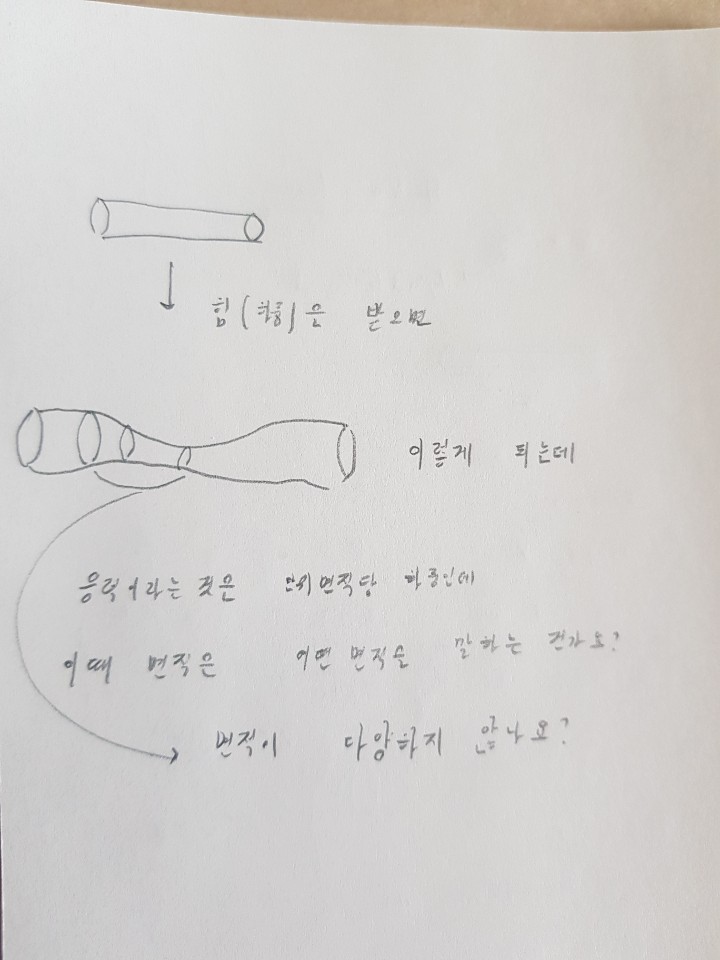 힘(하중)을 받으면
이렇게 되는데
응력이라는 것은 단위면적당 하중인데
이때 면적은 어떤 면적을 말하는 건가요?
면적이 다양하지 않나요?